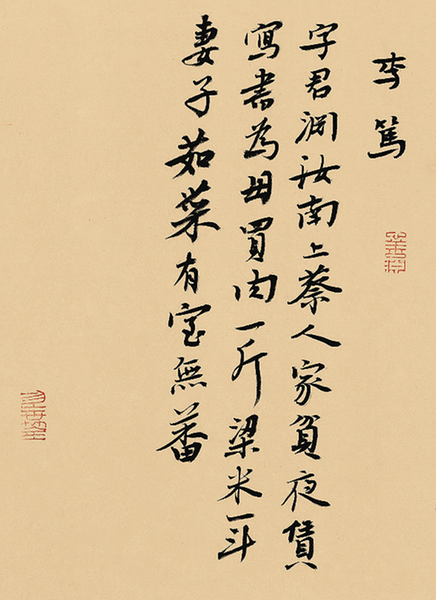 李篤
字君渊汝南上蔡人家貧夜賃
寫書為母買肉一斤梁米一斗
妻子茹菜有室無蕃